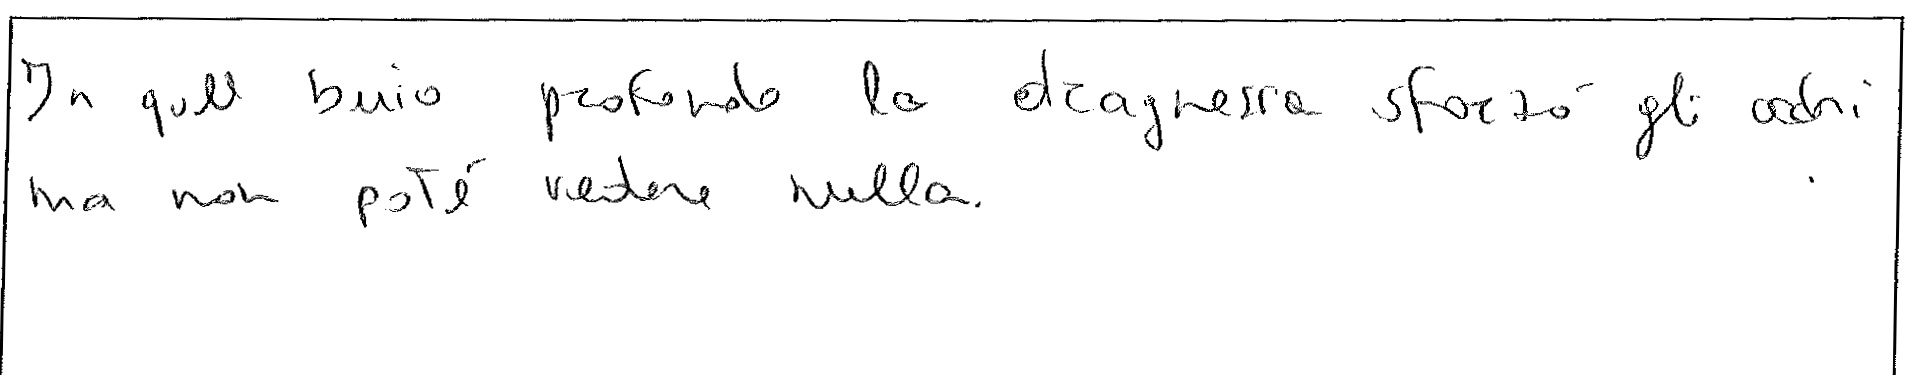 In quell buio profondo la dragnessa sforzó gli occhi
ma non poté vedere nulla.